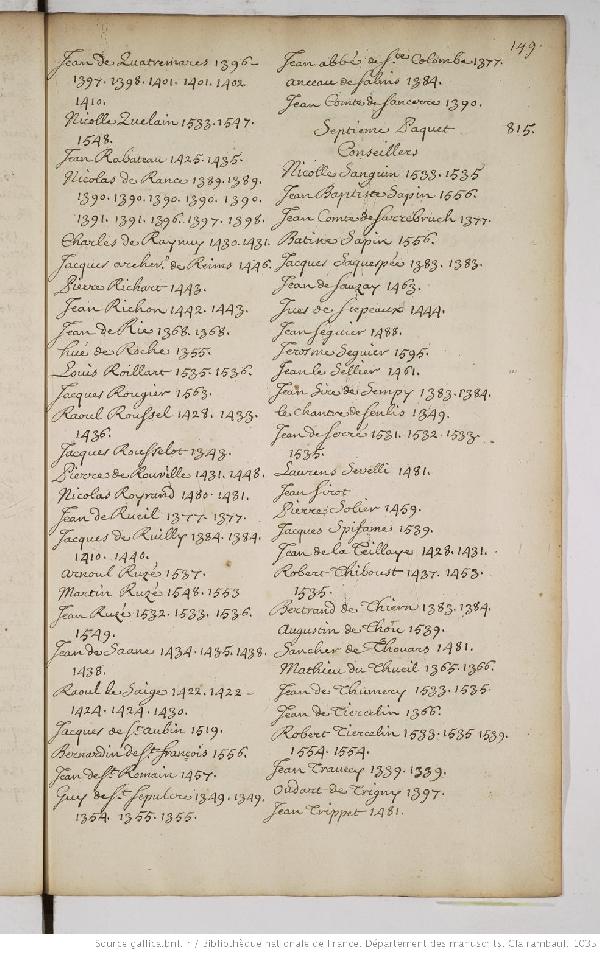 149.
Jean de Quatremares 1396-
1397. 1398. 1401. 1401. 1402
1410.
Nicolle Quelain 1533. 1547.
1548.
Jean Rabateau 1425. 1435.
Nicolas de Rance 1389. 1389.
1390. 1390. 1390. 1390. 1390.
1391. 1391. 1396. 1397. 1398.
Charles de Raynuy 1430. 1431.
Jacques archev. de Reims 1446.
Pierre Richart 1443.
Jean Richon 1442. 1443.
Jean de Rie 1368. 1368.
hué de Roche 1355.
Louis Roillart 1535. 1536.
Jacques Rougier 1563.
Raoul Roussel 1428. 1433.
1436.
Jacques Rousselot 1343.
Pierre de Rouville 1431. 1448.
Nicolas Royrand 1480. 1481.
Jean de Rueil 1377. 1377.
Jacques de Ruilly 1384. 1384.
1410. 1440.
arnoul Ruzé 1537.
Martin Ruzé 1548. 1553
Jean Ruzé 1532. 1533. 1536.
1549.
Jean de Saane 1434. 1435. 1438.
1438.
Raoul le Saige 1422. 1422-
1424. 1424. 1430.
Jacques de St. Aubin 1519.
Bernardin de St. françois 1556.
Jean de St. Romain 1457.
Guy de St. Sepulcre 1349. 1349.
1354. 1355. 1355.
Jean abbé de Ste. Colombe 1377.
anceau de salins 1384.
Jean Comte de sancerre 1390.
Septieme Paquet 815.
Conseillers
Nicolle Sanguin 1533. 1535
Jean Baptiste Sapin 1556.
Jean Comte de sarrebruch 1377.
Batiste Sapin 1556.
Jacques Saquespée 1383. 1383.
Jean de Sauzay 1463.
Jves de Sepeaux 1444.
Jean Seguier 1488.
Jerosme Seguier 1595.
Jean le Sellier 1461.
Jean Sire de Sempy 1383. 1384.
le chantre de senlis 1349.
Jean de Serre 1531. 1532. 1533
1535.
Laurens Sevelli 1481.
Jean Sirot
Pierre Solier 1459.
Jacques Spifame 1539.
Jean de la Teillaye 1428. 1431.
Robert Thiboust 1437. 1453.
1535.
Bertrand de Thiern 1383. 1384.
Augustin de Thou 1539.
Sancher de Thouars 1481.
Mathieu du Thueil 1365. 1366.
Jean de Thumery 1533. 1535.
Jean de Tiercelin 1366.
Robert Tiercelin 1533. 1535 1539.
1554. 1554.
Jean Travecy 1339. 1339.
Oudart de Trigny 1397.
Jean Trippet 1481.
Source gallica.bnf.fr / Bibliothèque nationale de France. Département des manuscrits. Clairambault 1035